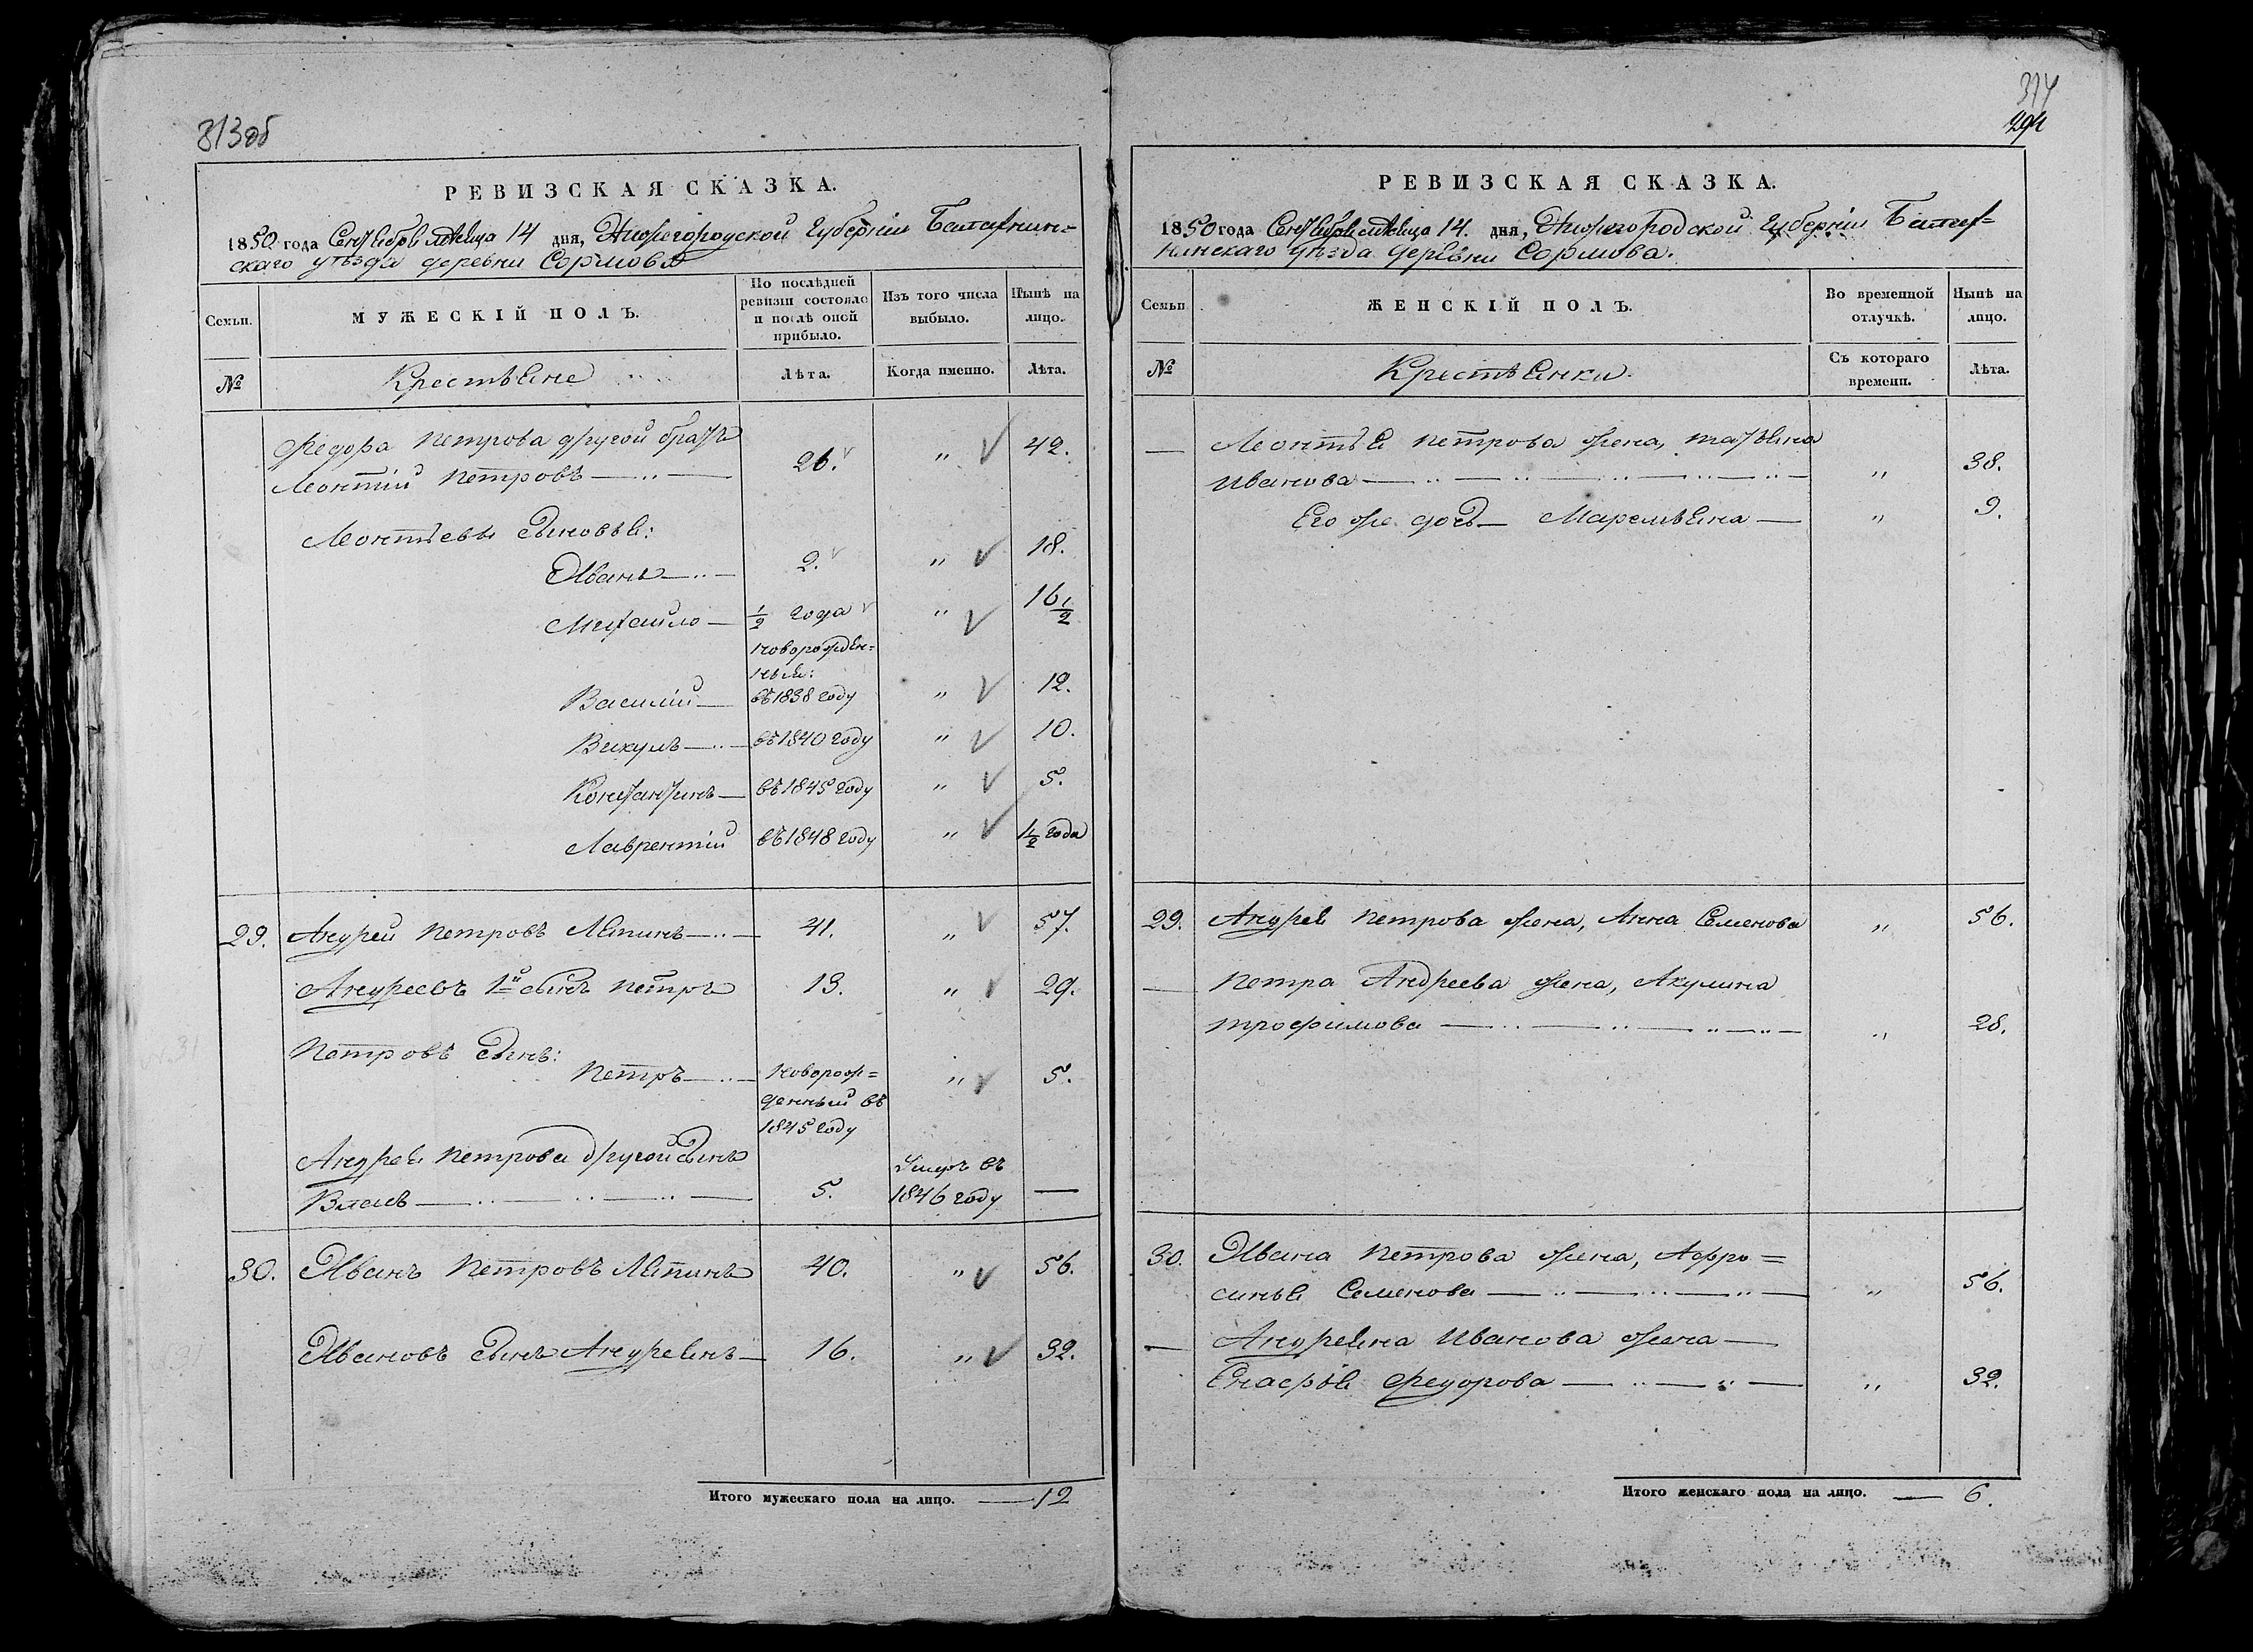 313об
РЕВИЗСКАЯ СКАЗКА.
1850 года Сентября месяца 14 дня, Нижегородской губерніи Балахнин=
скаго уѣзда деревни Сормова
Семьи.
МУЖЕСКІЙ ПОЛЪ.
По послѣдней ревизіи состояло и послѣ оной прибыло.
Изъ того числа выбыло.
Нынѣ на лицо.
№
Крестьяне
Лѣта.
Когда именно.
Лѣта.
Федора Петрова другой братъ
Леонтій Петровъ 26. " 42.
Леонтьевы сыновья:
Иванъ 2. " 18.
Михайло 1/2 года " 16 1/2
новорожден=
ныя:
Василій въ 1838 году " 12.
Викулъ въ 1840 году " 10.
Константинъ въ 1845 году " 5.
Лаврентій въ 1848 году " 1 1/2 года
29. Андрей Петровъ Ляпинъ 41. " 57.
Андреевъ 1й сынъ Петръ 13. " 29.
Петровъ сынъ:
Петръ новорож= " 5.
денный въ
1845 году
Андрея Петрова другой сынъ Умеръ въ
Власъ 5. 1846 году —
30. Иванъ Петровъ Ляпинъ 40. " 56.
Ивановъ сынъ Андреянъ 16. " 32.
Итого мужескаго пола на лицо. — 12
314
294
РЕВИЗСКАЯ СКАЗКА.
1850 года Сентября месяца 14. дня, Нижегородской губерніи Балах=
нинскаго уѣзда деревни Сормова.
Семьи
ЖЕНСКІЙ ПОЛЪ.
Во временной отлучкѣ.
Нынѣ на лицо.
№
Крестьянки.
Съ котораго времени.
Лѣта.
— Леонтья Петрова жена, Татьяна
Иванова " 38.
Его же дочь Маремьяна " 9.
29. Андрея Петрова жена, Анна Семенова " 56.
— Петра Андреева жена, Акулина
Трофимова " 28.
30. Ивана Петрова жена, Афро=
синья Семенова " 56.
— Андреяна Иванова жена
Федорова " 32.
Итого женскаго пола на лицо. — 6.